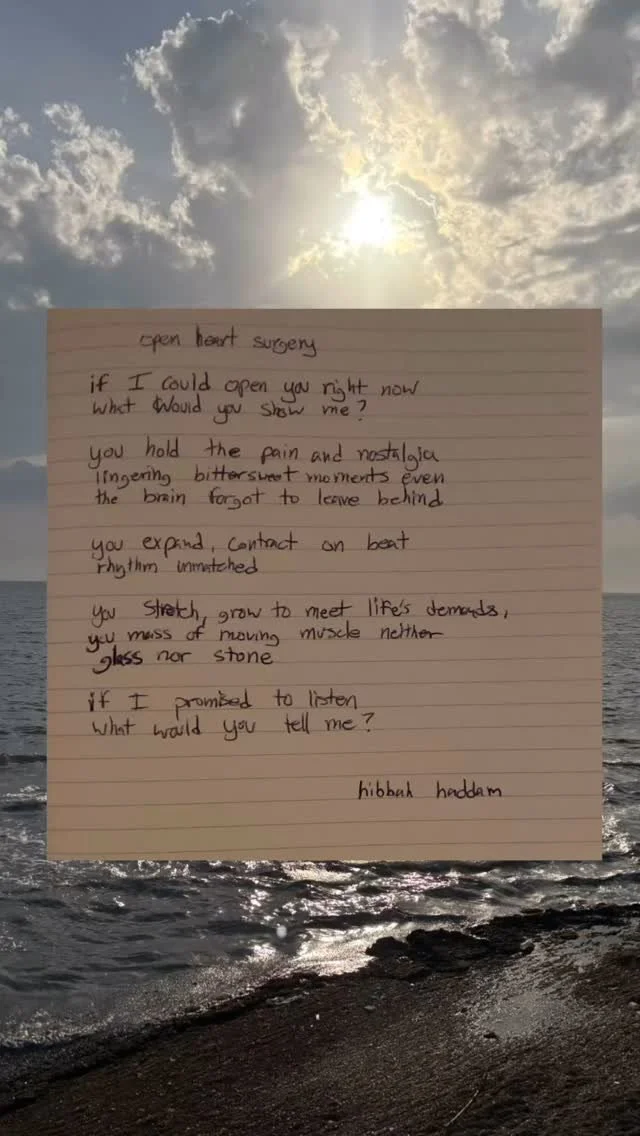 open heart surgery
if I could open you right now
what would you show me?
you hold the pain and nostalgia
lingering bittersweet moments even
the brain forgot to leave behind
you expand, contract on beat
rhythm unmatched
you stretch, grow to meet life's demands,
you mass of moving muscle neither
glass nor stone
if I promised to listen
what would you tell me?
hibbah haddam